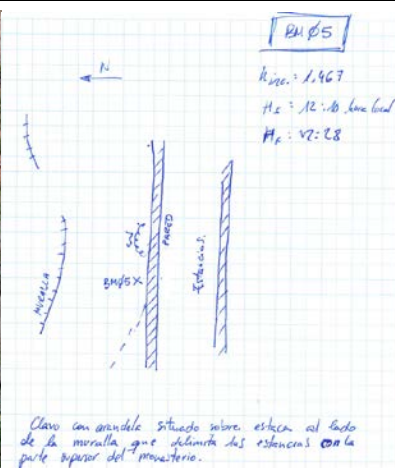 BMØ5
N
h inc.: 1,467
H I : 12:10 hora local
H F : 12:28
MURALLA
BMØ5X
PARED
Estancias.
Clavo con arandela situado sobre estaca al lado
de la muralla que delimita las estancias con la
parte superior del monasterio.